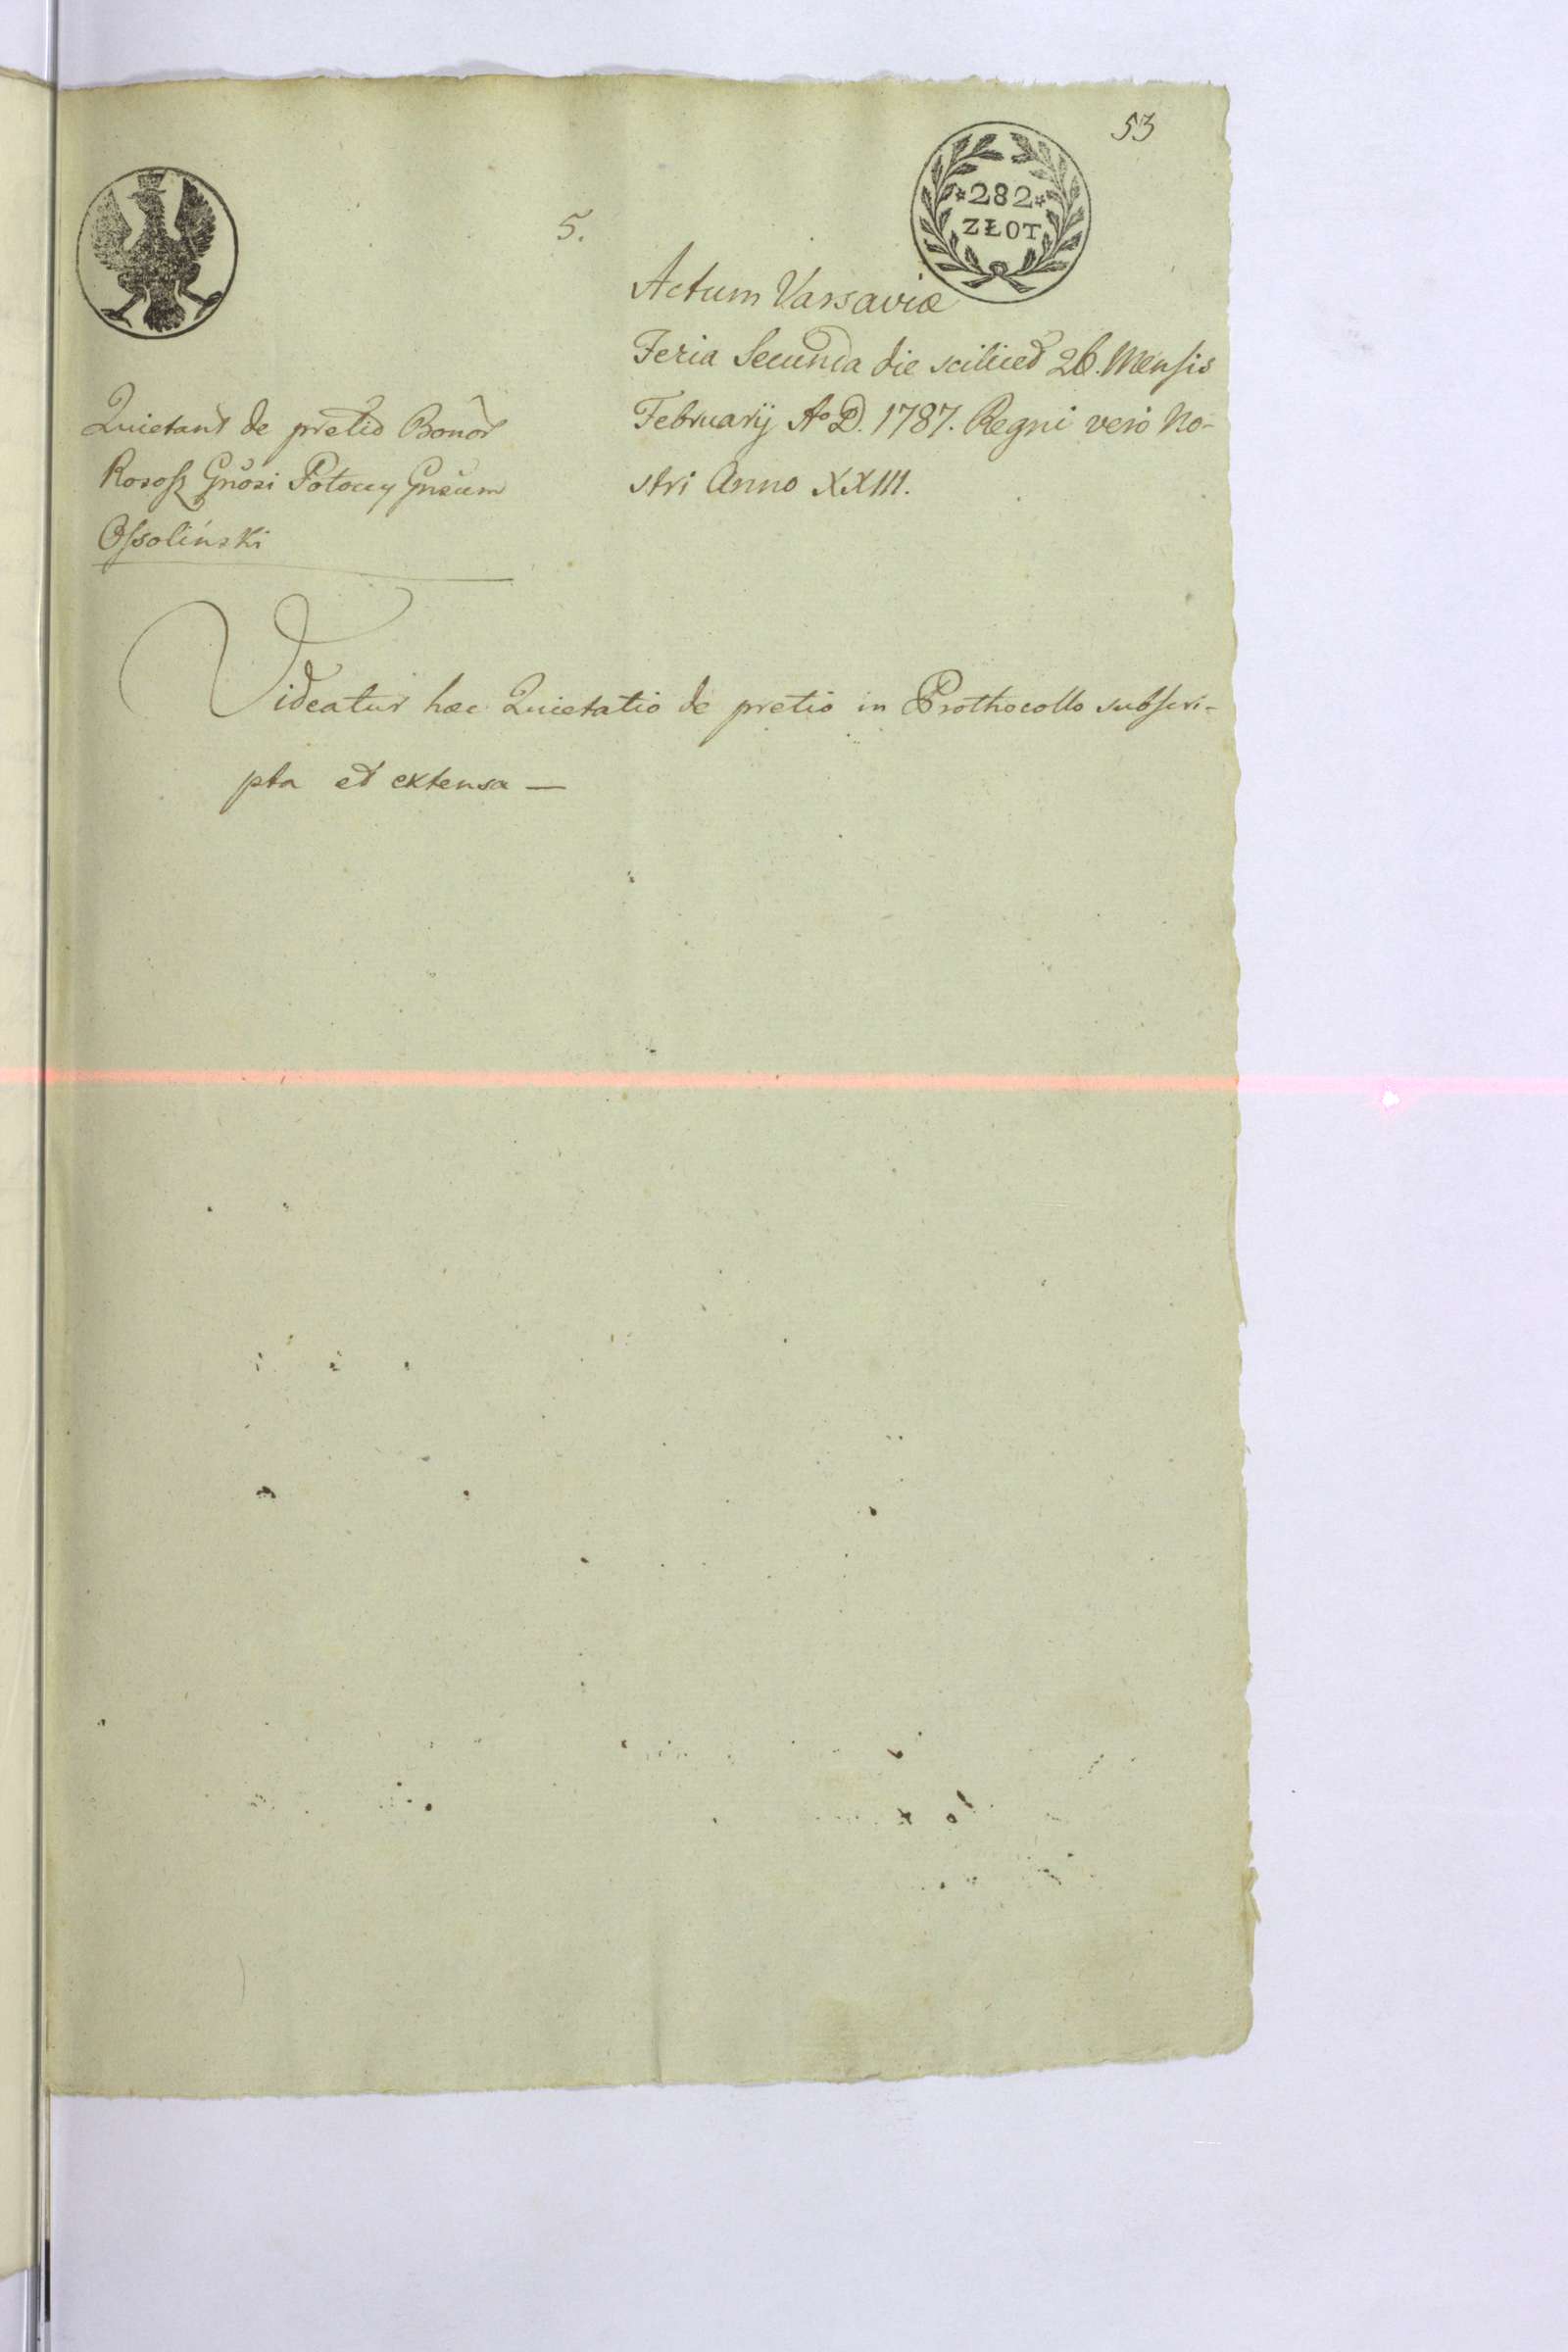 53
*282*
ZŁOT
5.
Actum Varsaviæ
Feria Secunda die scilicet 26. Mensis
Februarij Aº D. 1787. Regni vero No-
stri Anno XXIII.
Quietant de pretio Bonor
Rososz Gnősi Potoccy Gnsum
Ossoliński
Videatur hæc Quietatio de pretio in Prothocollo subscri-
pta et extensa —